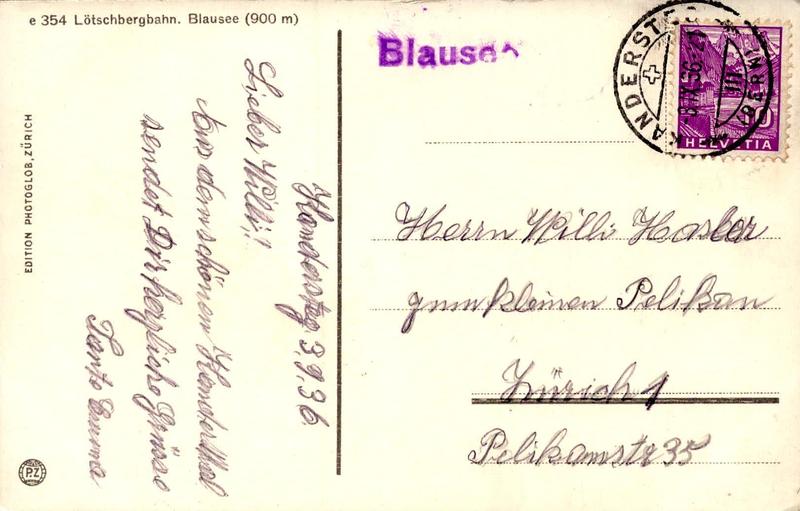 e 354 Lötschbergbahn. Blausee (900 m)
EDITION PHOTOGLOB, ZÜRICH
PZ
Kandersteg 3.9.36
Lieber Willi!
Aus dem schönen Kandertal
sendet Dir herzliche Grüsse
Tante Emma
Blausee
KANDERSTEG
(BERN)
HELVETIA
Herrn Willi Hasler
zum kleinen Pelikan
Zürich 1
Pelikanstr 35